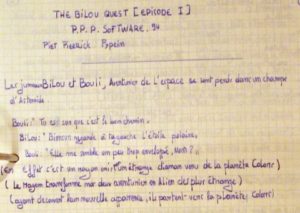 THE BILOU QUEST [EPISODE I]
P.P.P. SOFTWARE. 94
Piet Pierrick Pepein
Les jumeaux Bilou et Bouli, Aventurier de l'espace se sont perdu dans un champs
d'Asteroïde
Bouli: "Tu es sur que c'est le bon chemin.
Bilou: "Bimeux regarde à ta gauche l'étoile polaire,
Bouli: "Elle me semble un peu trop enveloppé, Nooh? "
(En effet c'est un noyau étrange venu de la planète Coloric)
(Le Noyau transforme nos deux aventuriers en Alien du plus étrange)
(ayant découvert leur nouvelle apparence, ils partent vers la planète Coloric)